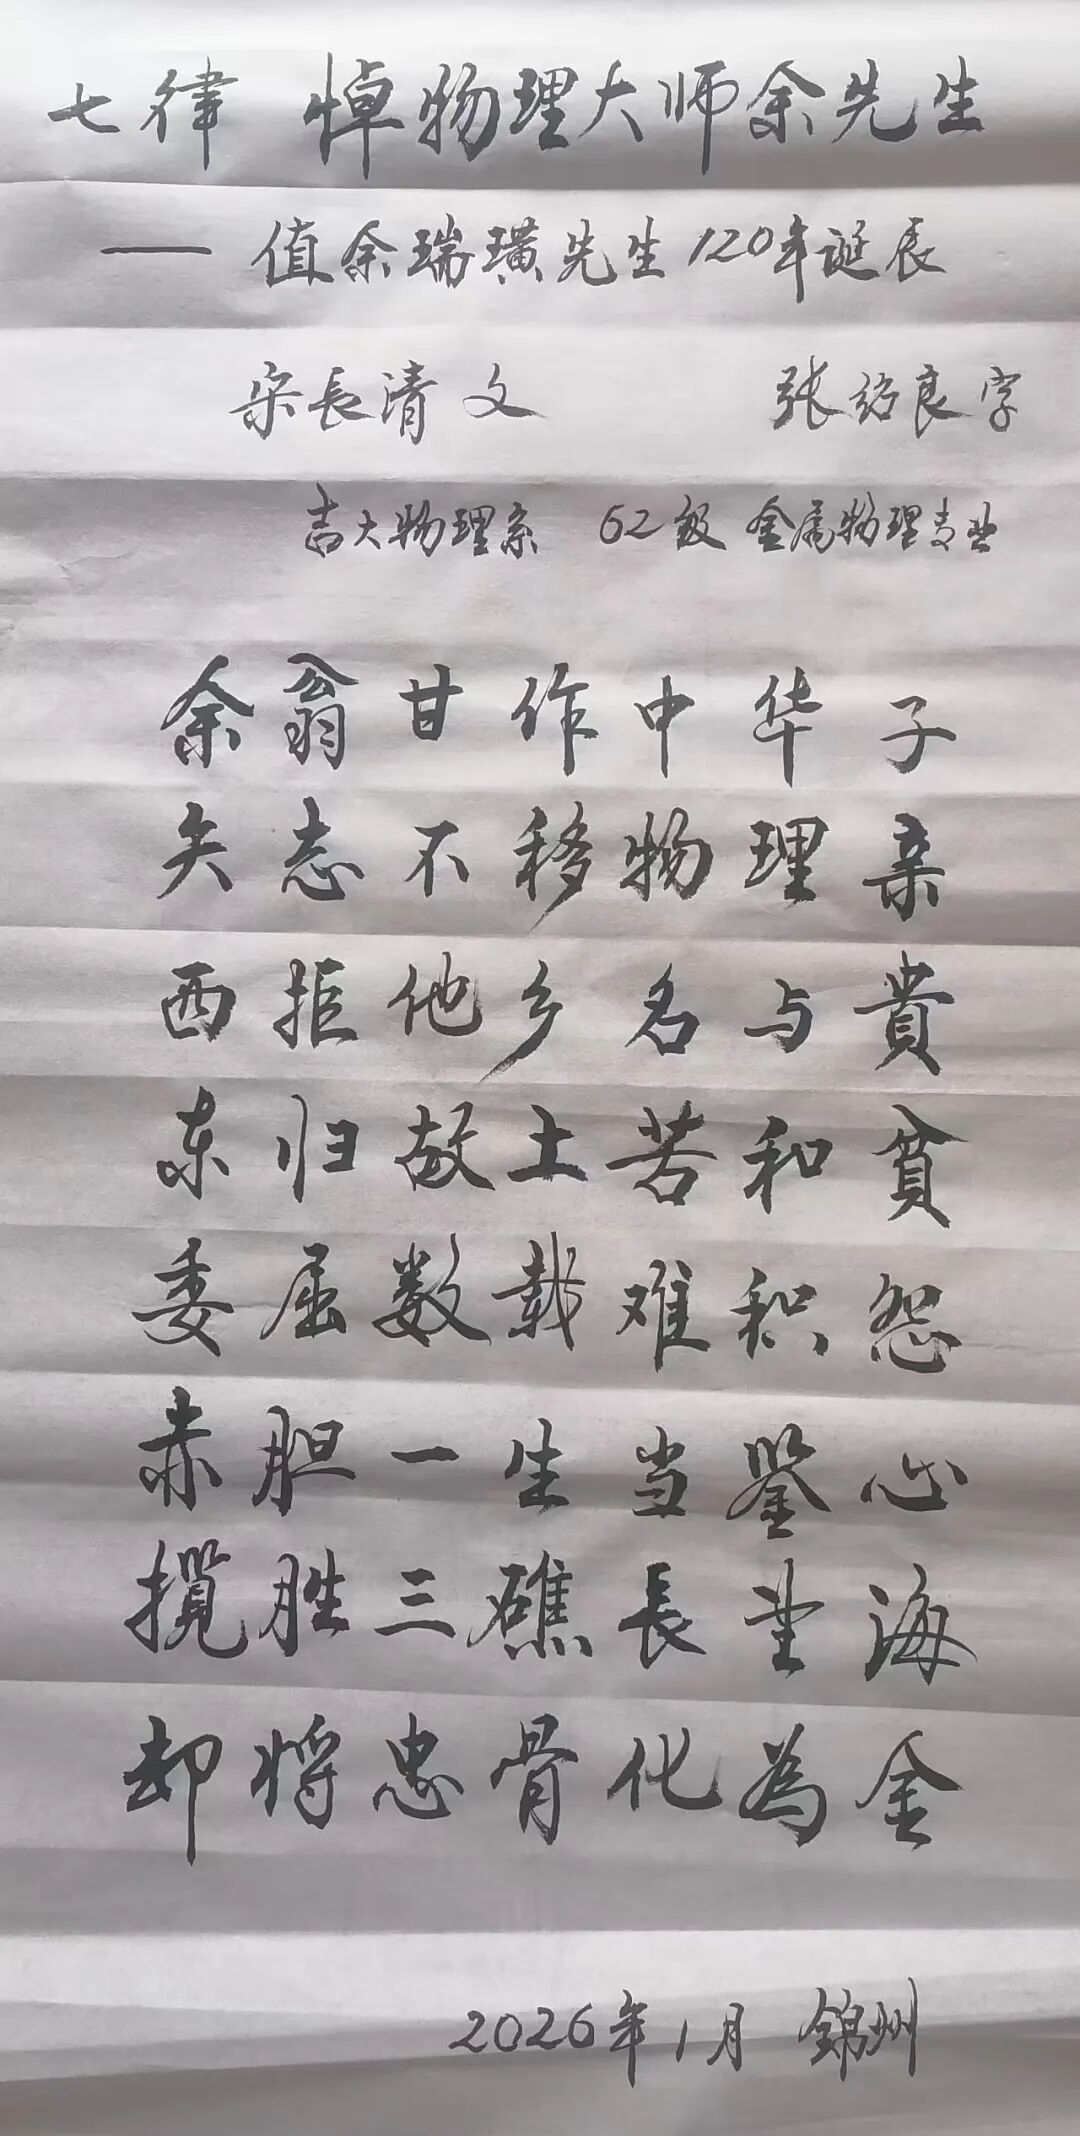 七律 悼物理大师余先生
——值余瑞璜先生120年诞辰
宋長清文 张绍良字
吉大物理系 62级 金属物理专业
余翁甘作中华子
矢志不移物理亲
西拒他乡名与貴
东归故土苦和貧
委屈数载难积怨
赤胆一生当鉴心
揽胜三礁長望海
却将忠骨化為金
2026年1月 錦州